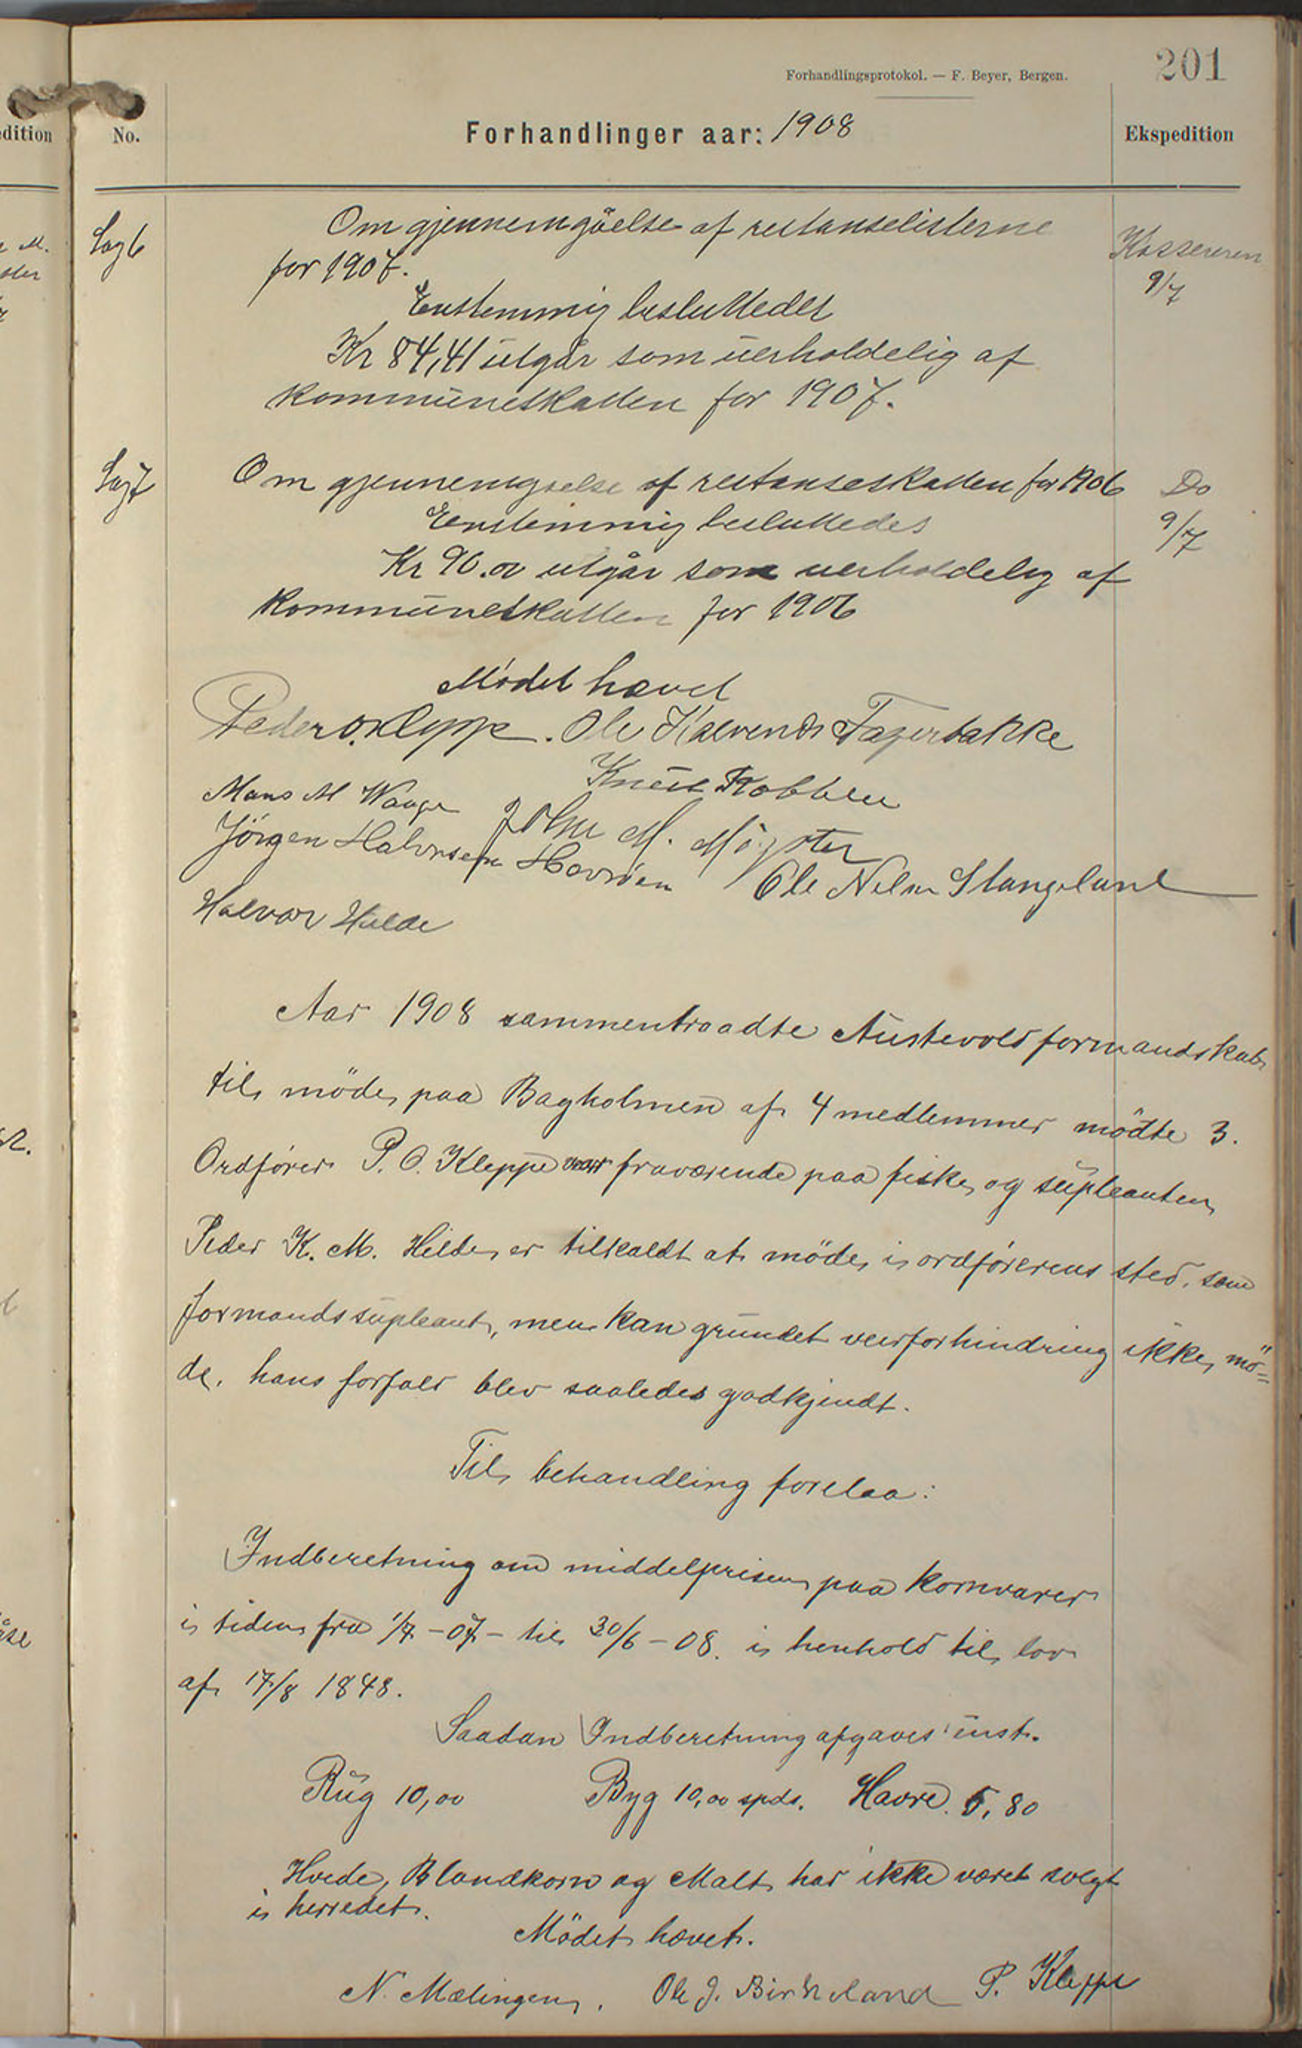 201
Forhandlingsprotokol. — F. Beyer, Bergen.
dition
No.
Forhandlinger aar: 1908
Ekspedition
Sag 6
Om gjennemgåelse af restanselisterne
for 1907.
Kassereren
9/7
Enstemmig besluttedes
Kr 84,41 utgår som uerholdelig af
kommuneskatten for 1907.
Sag 7
Om gjennemgåelse af restanseskatten for 1906
Do
9/7
Enstemmig besluttedes
Kr 90.00 utgår som uerholdelig af
kommuneskatten for 1906
Mødet hævet
Peder O. Kleppe. Ole Kalvenes Fagerbakke
Mons M Waage
Knut Robben
John M. Møgster
Jörgen Halvorsen Hovröen
Ole Nelsen Stangeland
Halvor Hilde
Aar 1908 sammentraadte Austevold formandskab
til möde paa Bagholmen af 4 medlemmer mödte 3.
Ordfører P. O. Kleppe var fraværende paa fiske og supleanten
Peder K. M. Hilde er tilkaldt at möde i ordførerens sted, som
formandssupleant, men kan grundet veirforhindring ikke mö=
de. hans forfald blev saaledes godkjendt.
Til behandling forelaa:
Indberetning om middelprisen paa kornvarer
i tiden fra 1/7 - 07 - til 30/6 - 08. i henhold til lov
af 17/8 1848.
Saadan Indberetning afgaves enst.
Rug 10,00 Byg 10,00 spds. Havre 5,80
Hvede, Blandkorn og Malt har ikke været solgt
i herredet.
Mödet hævet.
N. Mælingen. Ole J. Birkeland P. Kleppe